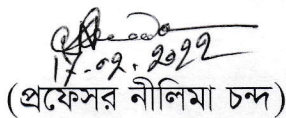 17.02.2022
(প্রফেসর নীলিমা চন্দ)